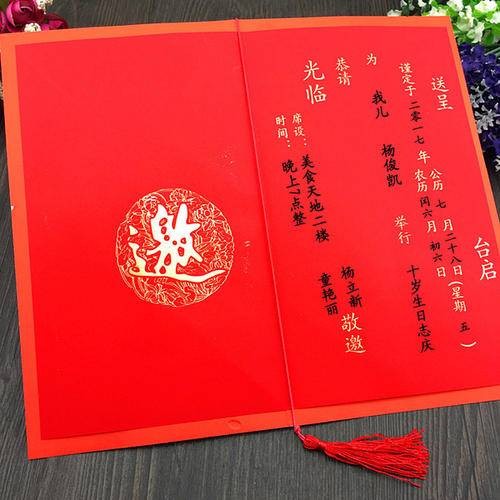 送呈 台启
谨定于二零一七年 公历七月二十八日(星期五)
农历闰六月初六日
为 我儿 杨俊凯 举行 十岁生日志庆
恭请
光临
杨立新
童艳丽
敬邀
席设:美食天地二楼
时间:晚上7点整
邀